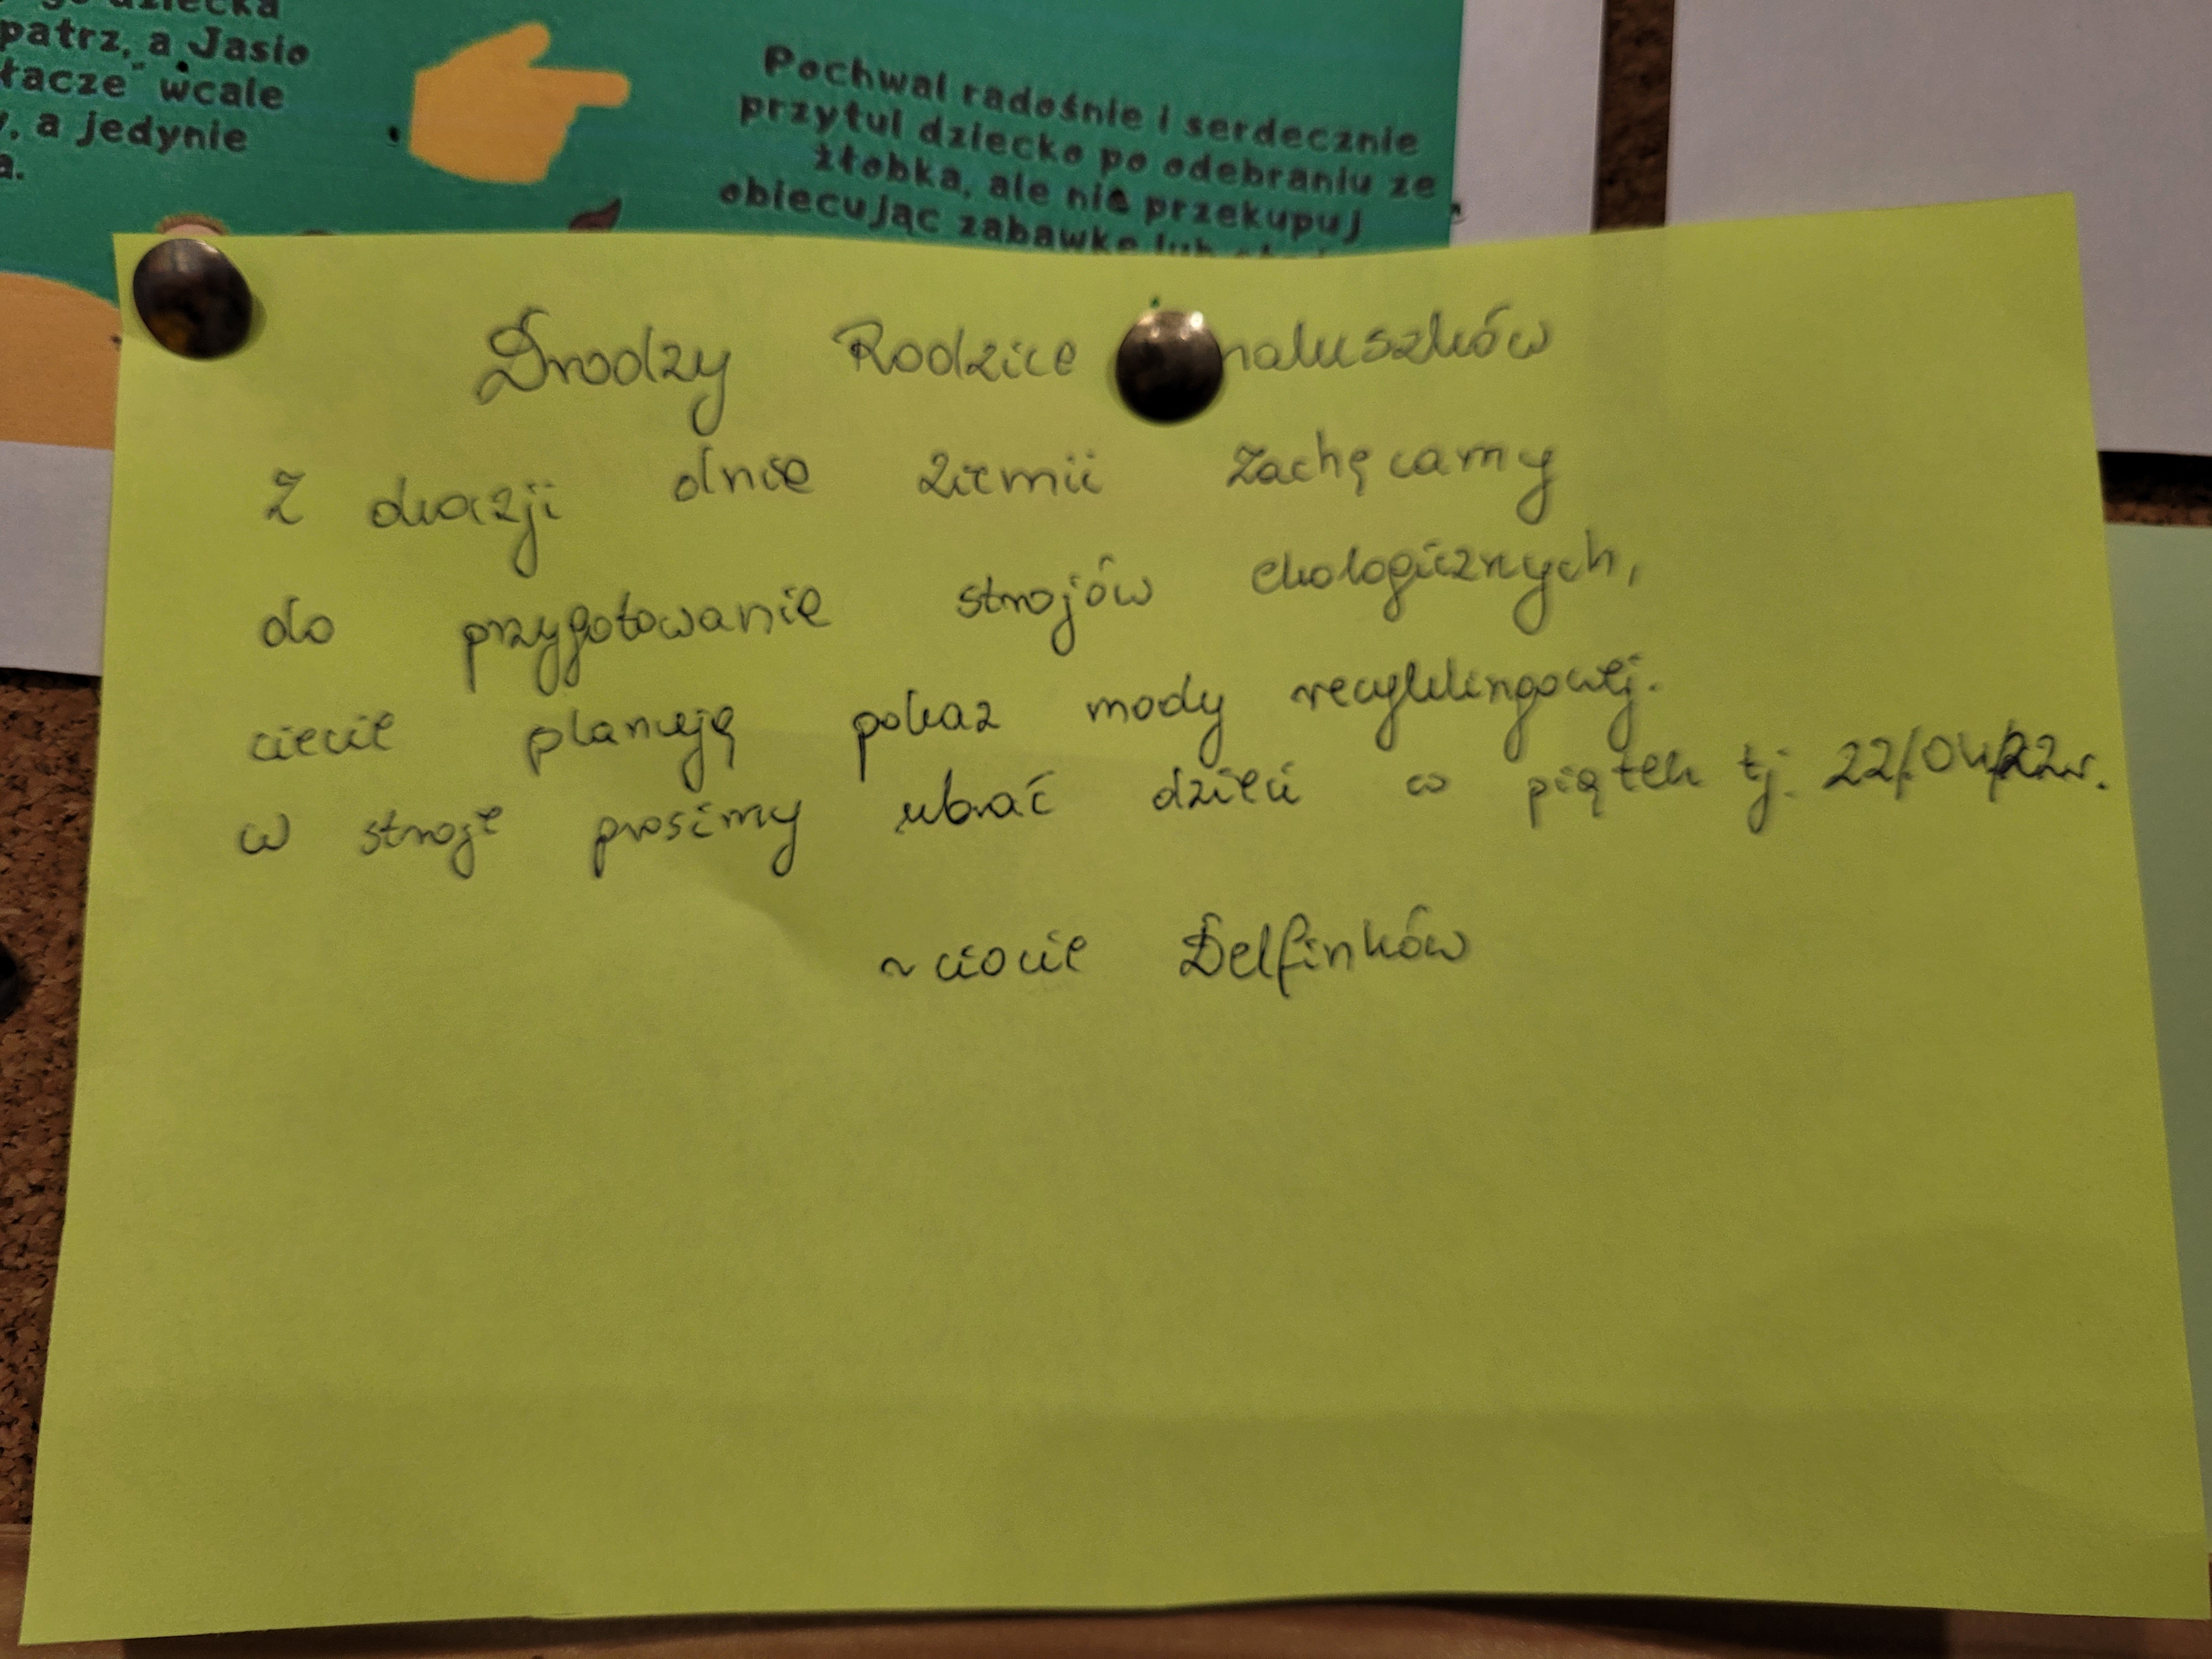 dziecka
patrz, a Jasio
wcale
, a jedynie
a.
Pochwal radośnie i serdecznie
przytul dziecko po odebraniu ze
żłobka, ale nie przekupuj
obiecując zabawkę lub
Drodzy Rodzice maluszków
Z okazji dnia ziemii zachęcamy
do przygotowania strojów ekologicznych,
ciocie planują pokaz mody recyklingowej.
w stroje prosimy ubrać dzieci w piątek tj. 22/04/22r.
~ ciocie Delfinków